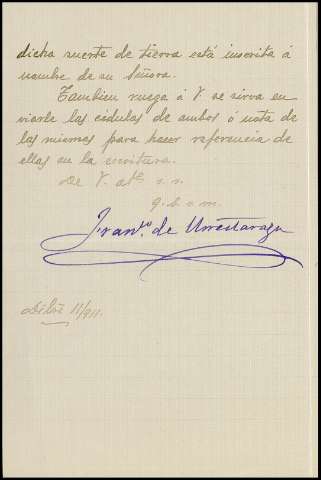 dicha suerte de tierra está inscrita á
nombre de su Señora.
Tambien ruega á V. se sirva en
viarle las cédulas de ambos ó nota de
las mismas para hacer referencia de
ellas en la escritura.
De V. att.º s. s.
q. b. s. m.
Fran.co de Urrestarazu
11/911.